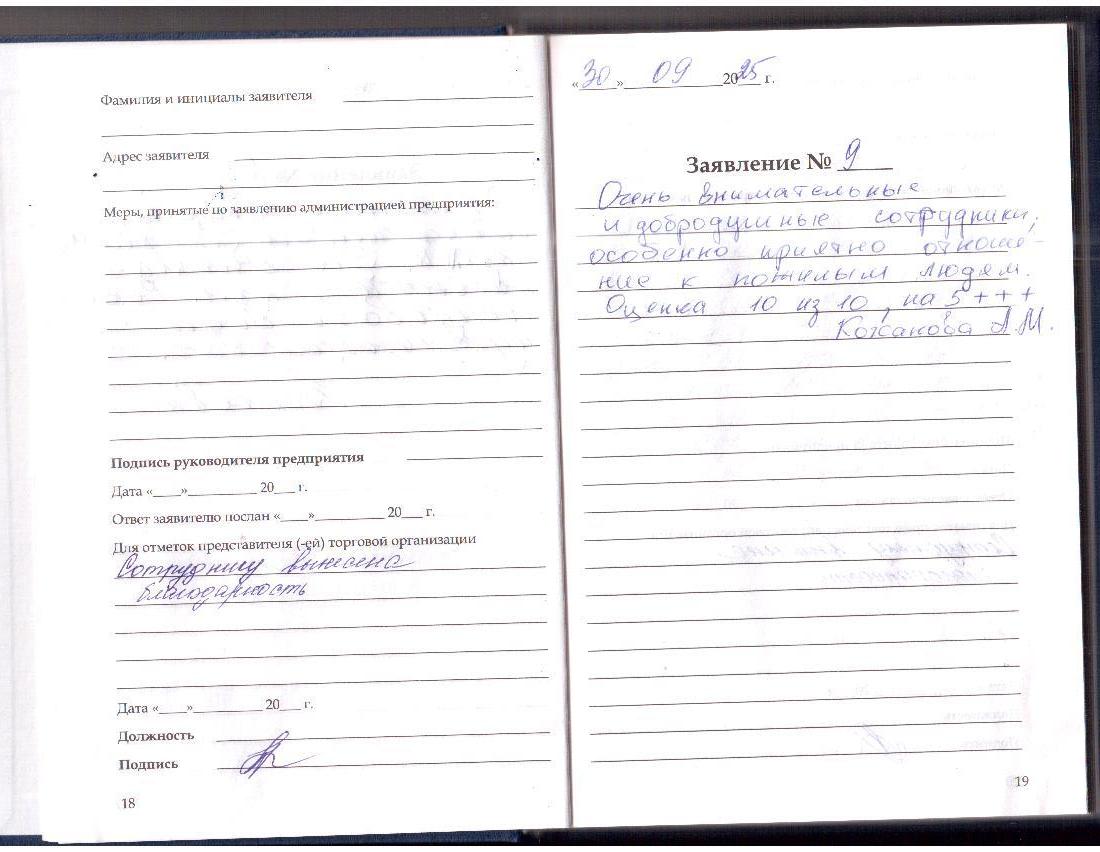 Фамилия и инициалы заявителя
Адрес заявителя
Меры, принятые по заявлению администрацией предприятия:
Подпись руководителя предприятия
Дата «____»__________ 20___ г.
Ответ заявителю послан «____»__________ 20___ г.
Для отметок представителя (-ей) торговой организации
Сотруднику вынесена
благодарность
Дата «____»__________ 20___ г.
Должность
Подпись
18
«30» 09 2025 г.
Заявление № 9
Очень внимательные
и добродушные сотрудники,
особенно приятно отноше-
ние к пожилым людям.
Оценка 10 из 10, на 5+++
Кожанова А.М.
19